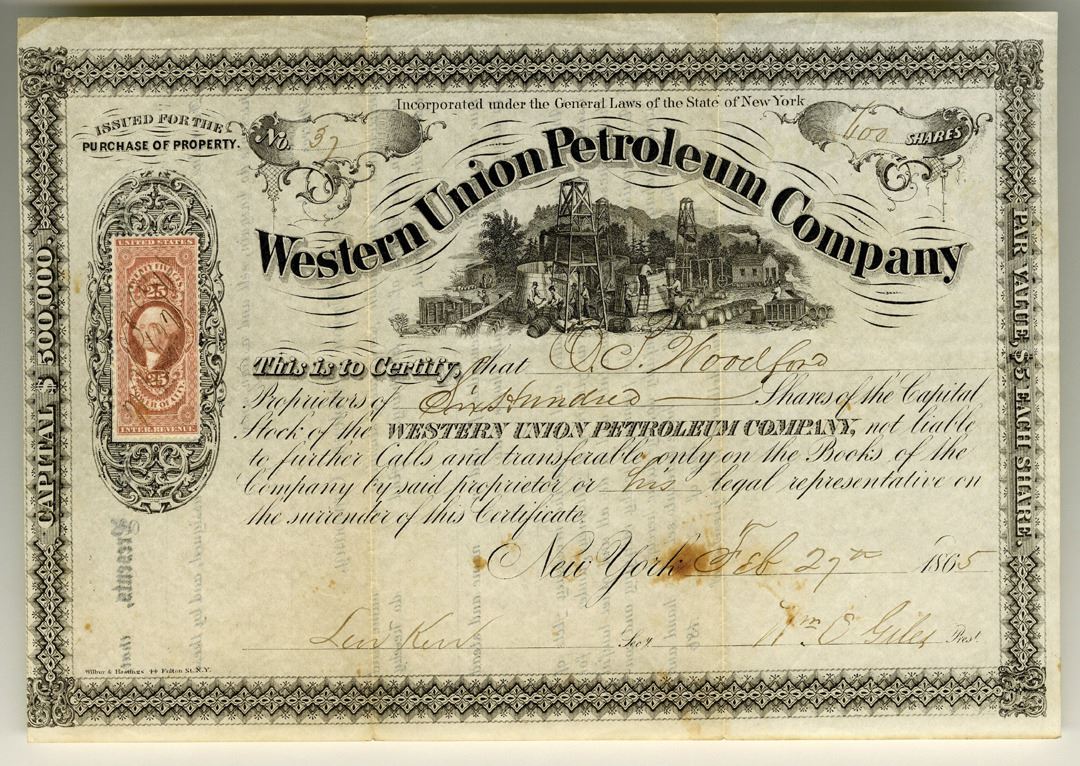 Incorporated under the General Laws of the State of New York
ISSUED FOR THE
PURCHASE OF PROPERTY.
No. 37
600 SHARES
Western Union Petroleum Company
UNITED STATES
25
25
INTER. REVENUE
CAPITAL $ 500,000.
PAR VALUE, $5 EACH SHARE.
This is to Certify, that O. S. Woodford
Proprietors of Six Hundred Shares of the Capital
Stock of the WESTERN UNION PETROLEUM COMPANY, not liable
to further Calls and transferable only on the Books of the
Company by said proprietor or his legal representative on
the surrender of this Certificate
New York Feb 27th 1865
Secy. Wm E Giles Prest.
Wilbur & Hastings 44 Fulton St. N.Y.